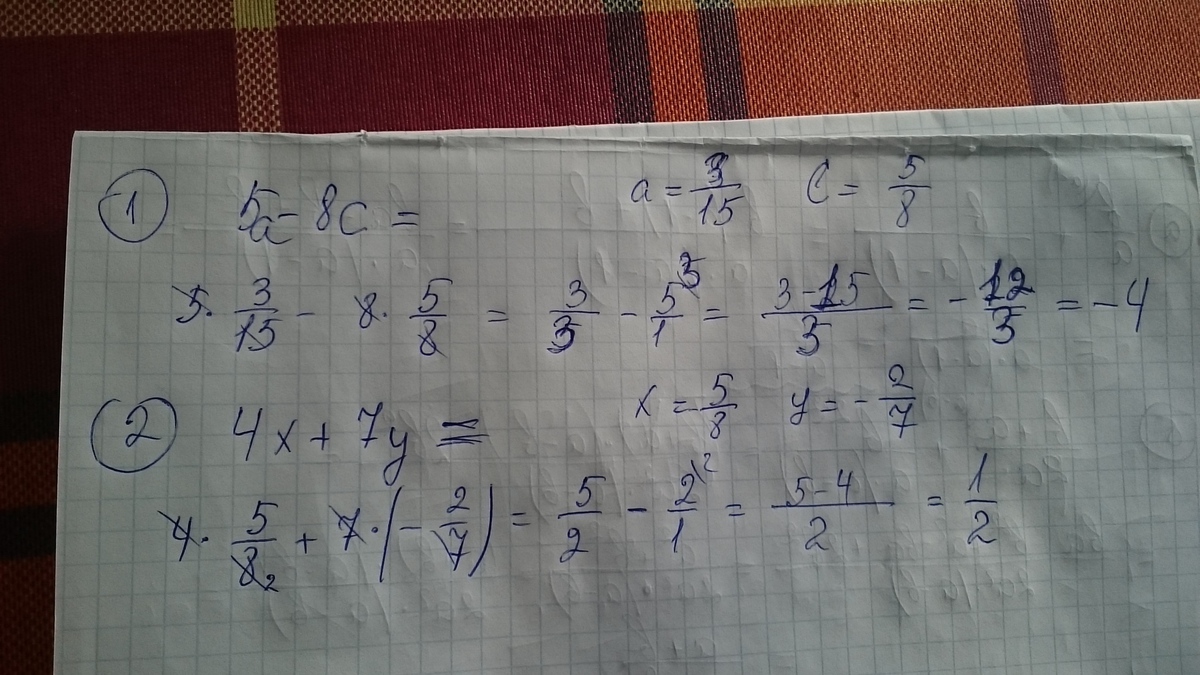 1 5a - 8c = a = 3/15 c = 5/8
5 · 3/15 - 8 · 5/8 = 3/3 - 5/1 \3 = 3-15/3 = - 12/3 = - 4
2 4x + 7y = x = 5/8 y = - 2/7
4 · 5/8 2 + 7 · (- 2/7) = 5/2 - 2/1 \2 = 5-4/2 = 1/2